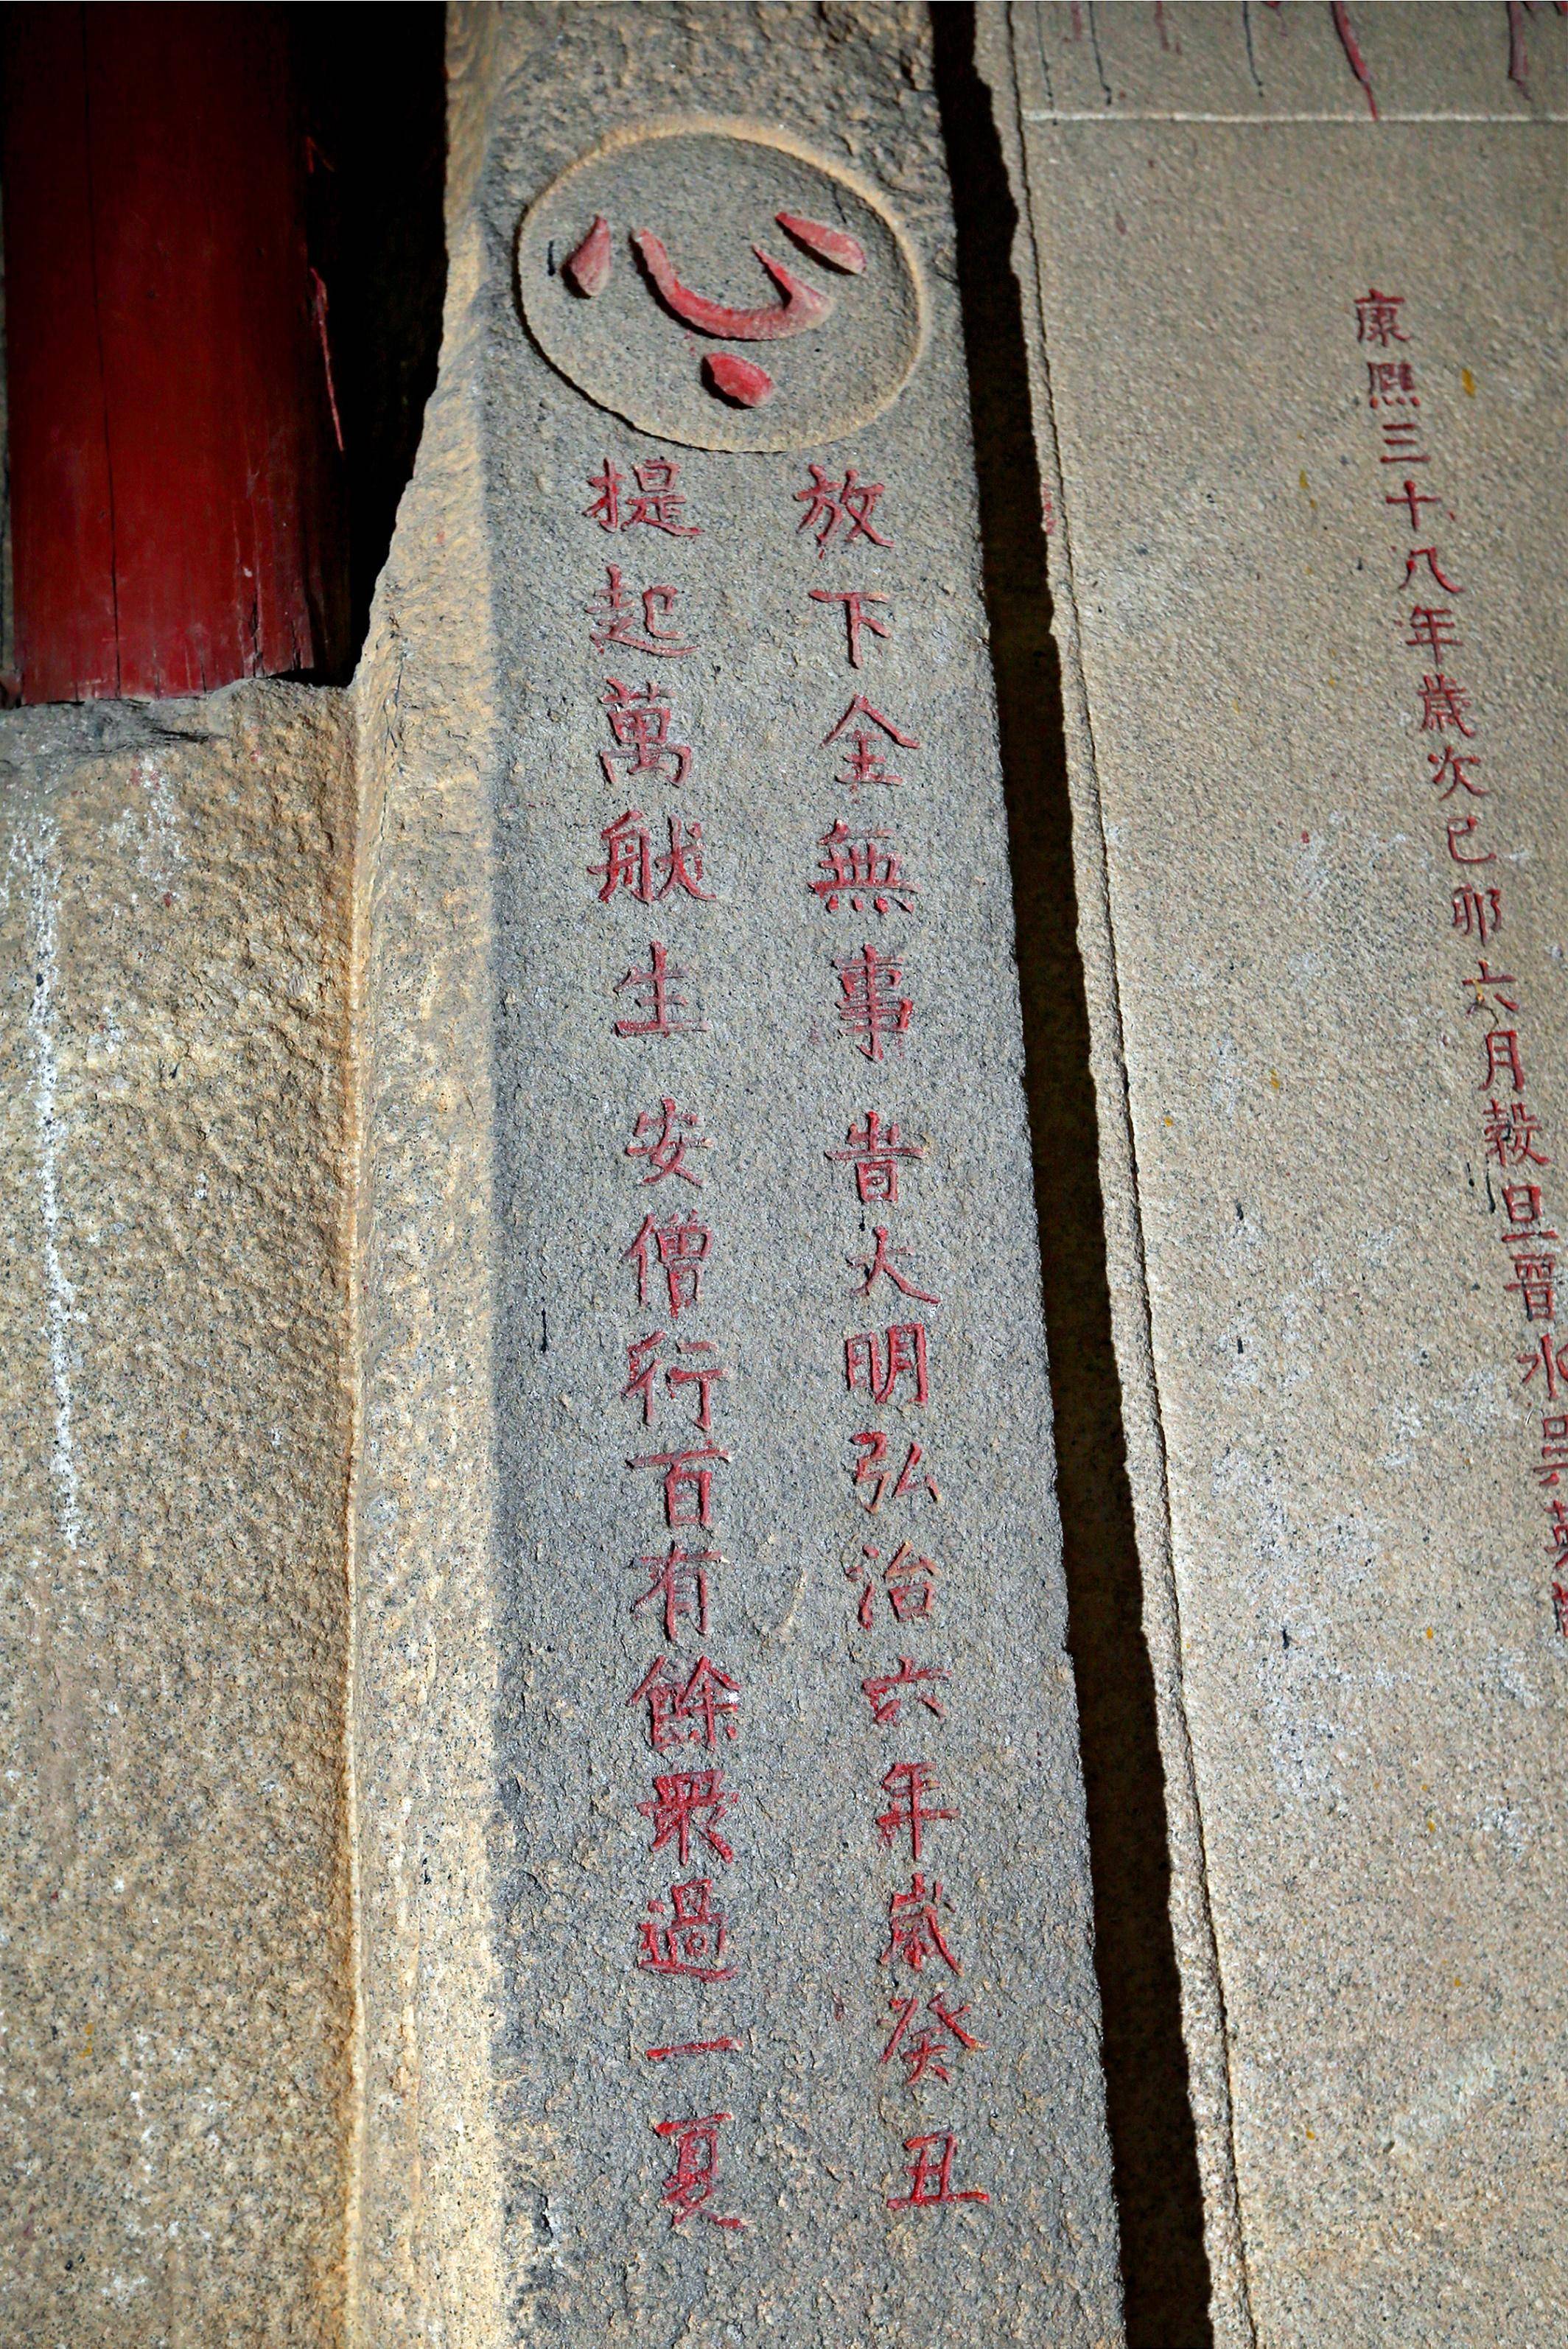 康熙三十八年歲次己卯六月穀旦晉水
心
放下全無事 昔大明弘治六年歲癸丑
提起萬般生 安僧行百有餘眾過一夏